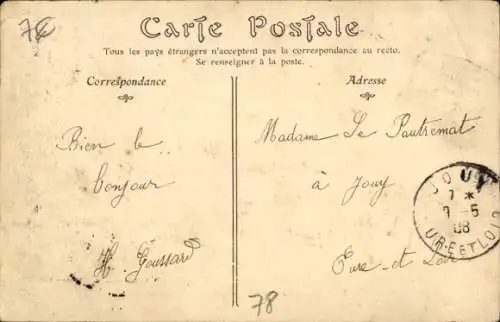 7€
Carte Postale
Tous les pays étrangers n'acceptent pas la correspondance au recto.
Se renseigner à la poste.
Correspondance
Bien le
bonjour
H. Goussard
Adresse
Madame Le Pautremat
à Jouy
Eure-et-Loir
JOUY
7 *
9 -5
08
EURE-ET-LOIR
78